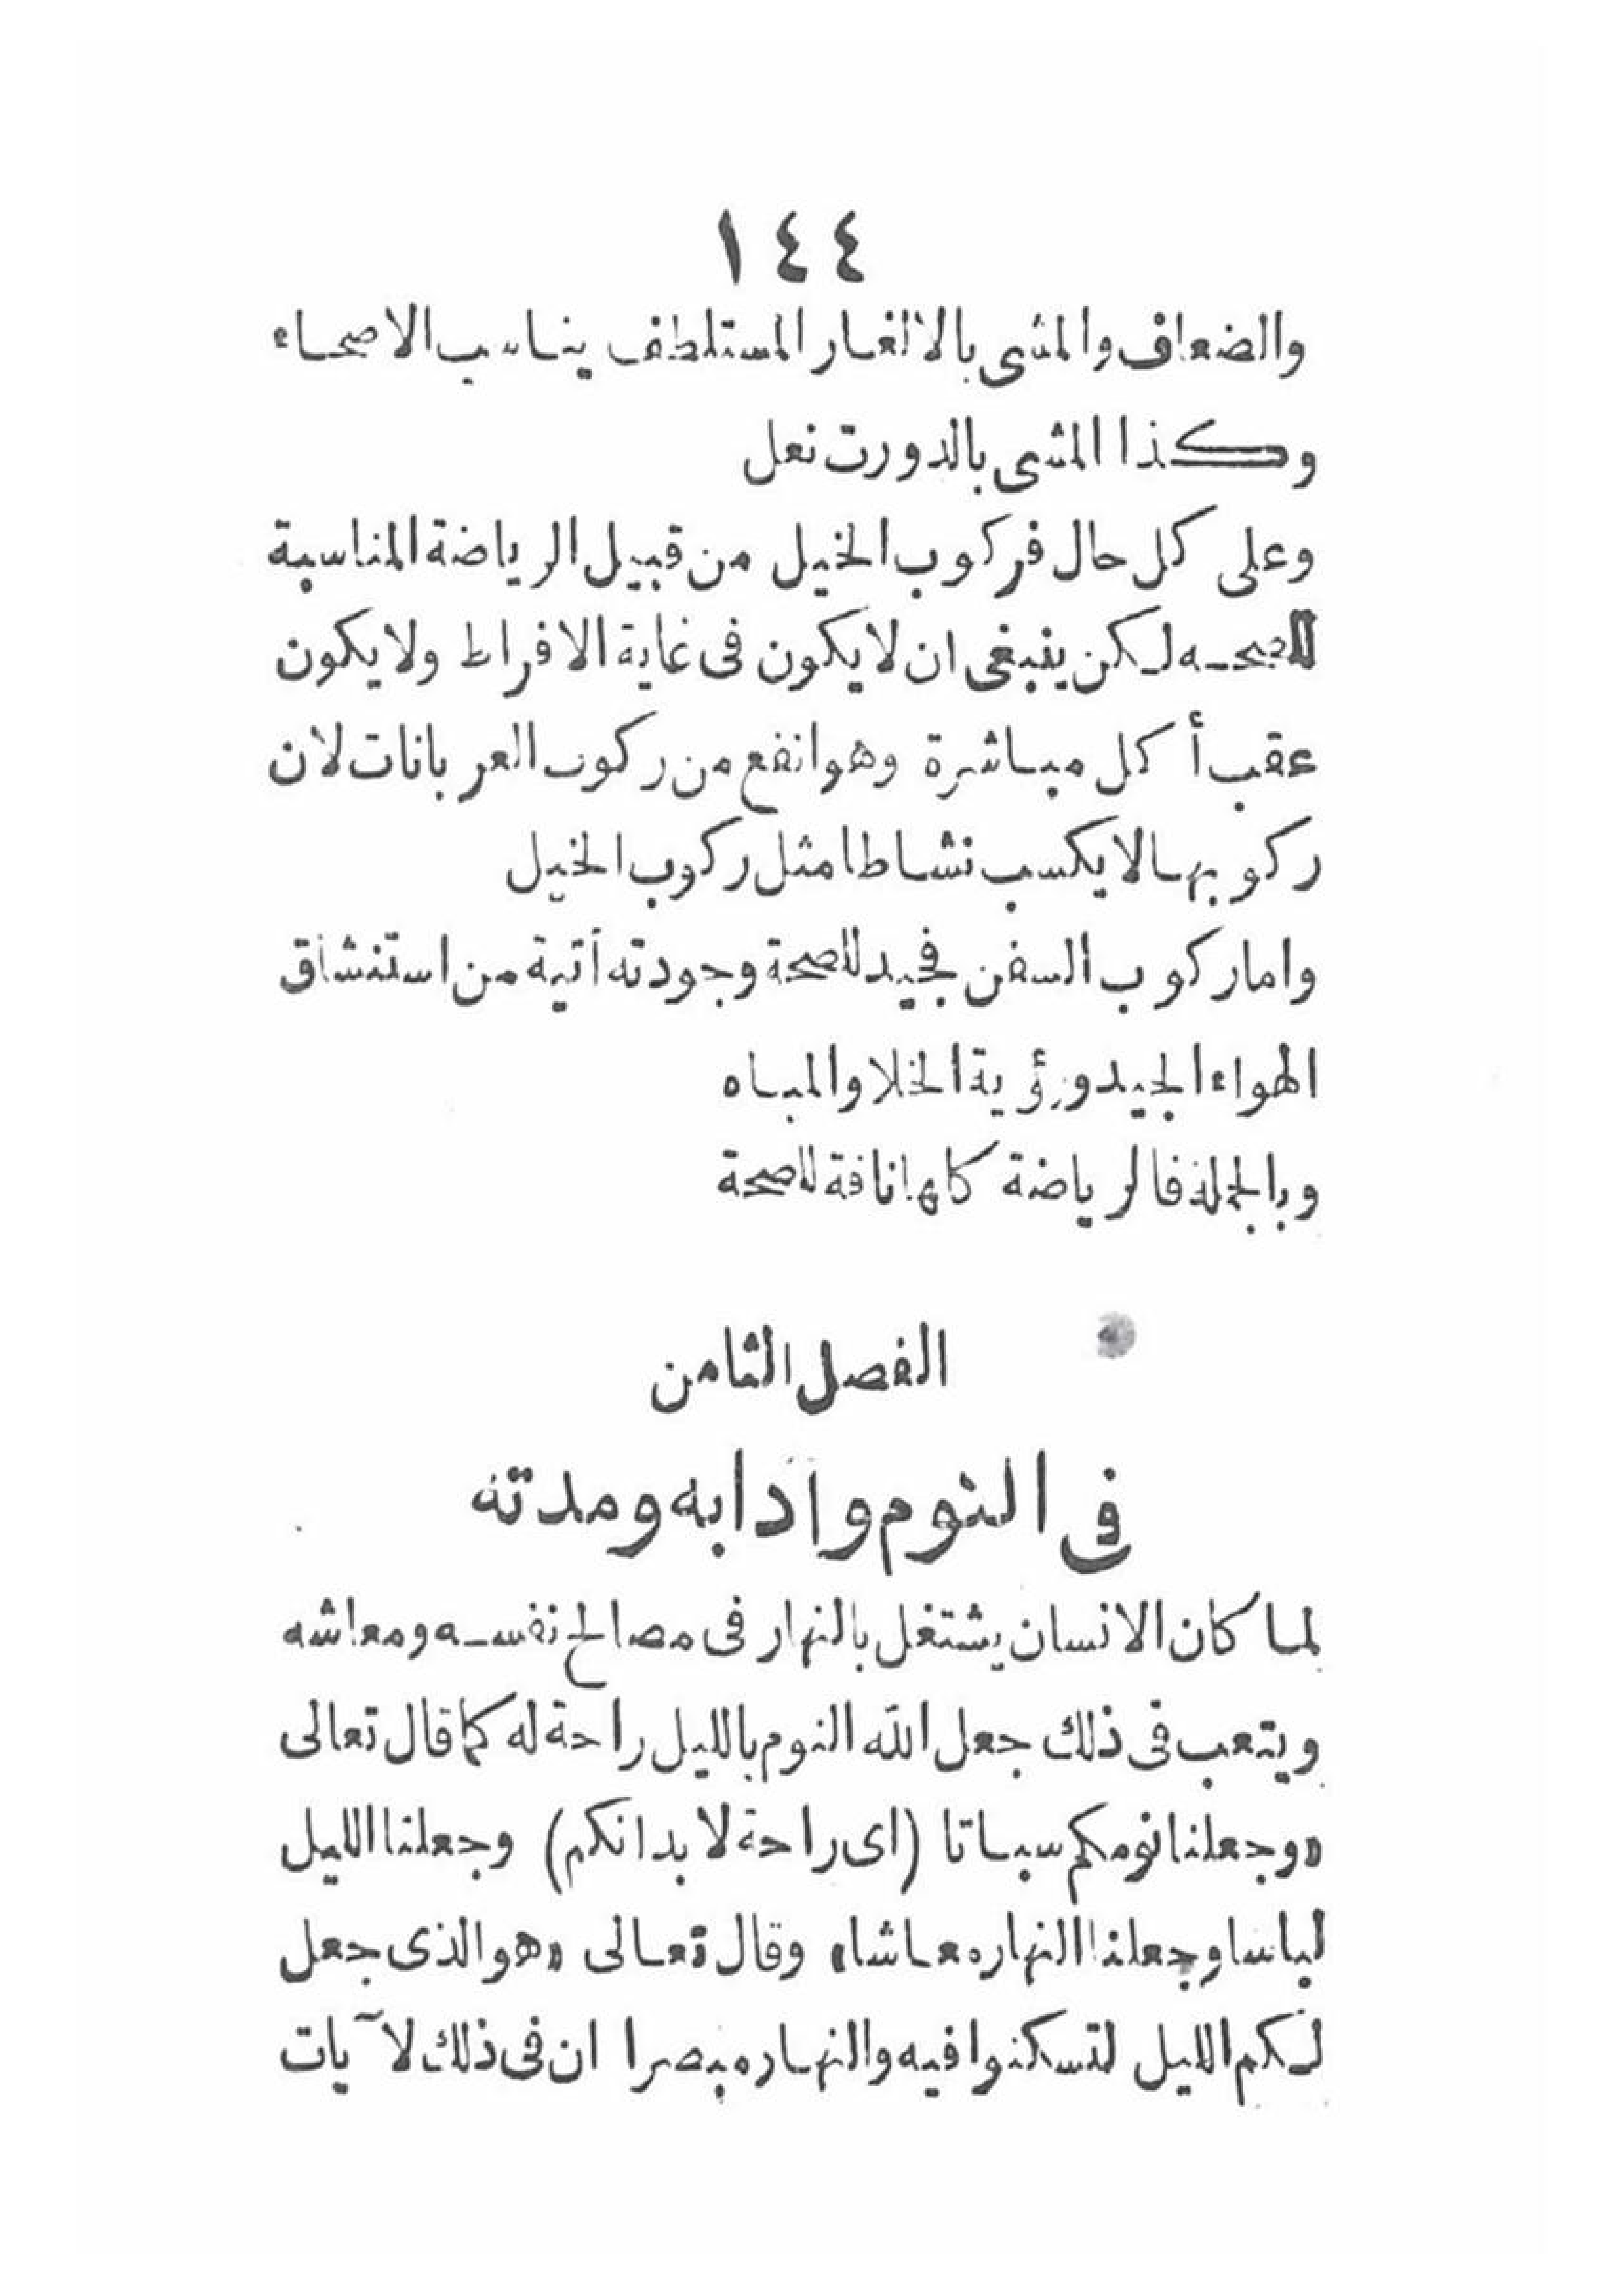 ١٤٤
والضعاف والمشى بالالغار المستلطف يناسب الاصحاء
وكذا المشى بالدورت نعل
وعلى كل حال فركوب الخيل من قبيل الرياضة المناسبة
للصحه لكن ينبغى ان لايكون فى غاية الافراط ولايكون
عقب أكل مباشرة وهو انفع من ركوب العربانات لان
ركوبها لايكسب نشاطا مثل ركوب الخيل
واما ركوب السفن فجيد للصحة وجودته آتية من استنشاق
الهواء الجيد ورؤية الخلا والمياه
وبالجملة فالرياضة كلها نافة للصحة
الفصل الثامن
فى النوم وادابه ومدته
لما كان الانسان يشتغل بالنهار فى مصالح نفسه ومعاشه
ويتعب فى ذلك جعل الله النوم بالليل راحة له كما قال تعالى
«وجعلنا نومكم سباتا (اى راحة لابدانكم) وجعلنا الليل
لباسا وجعلنا النهار معاشا» وقال تعالى «هو الذى جعل
لكم الليل لتسكنوا فيه والنهار مبصرا ان فى ذلك لآيات